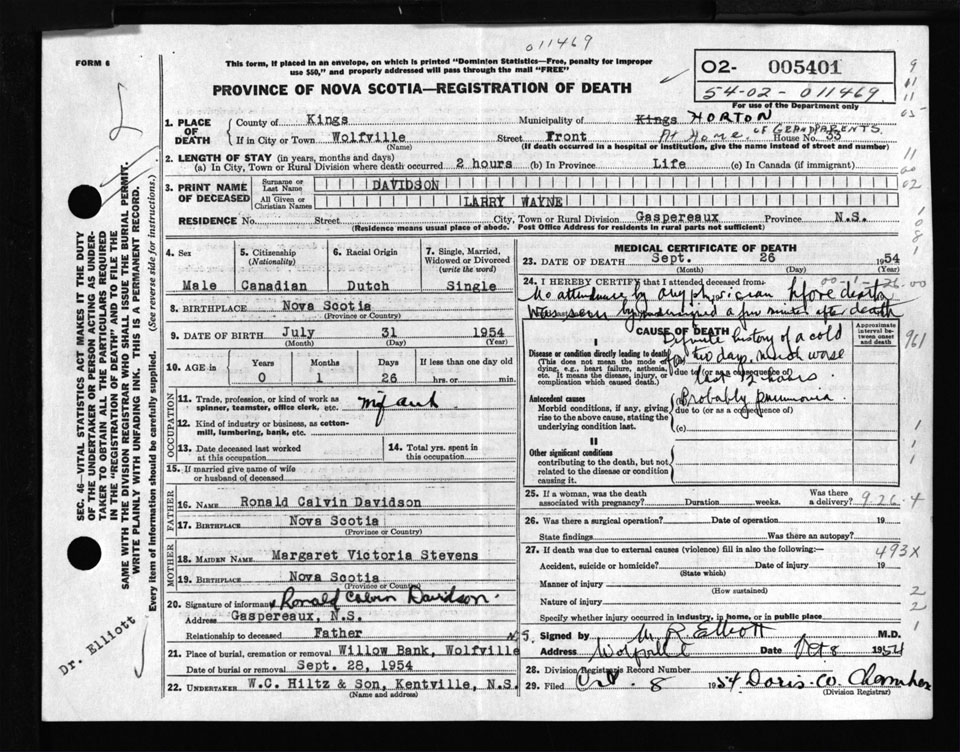 011469
FORM 6
This form, if placed in an envelope, on which is printed "Dominion Statistics—Free, penalty for improper
use $50," and properly addressed will pass through the mail "FREE"
PROVINCE OF NOVA SCOTIA—REGISTRATION OF DEATH
02- 005401
54-02-011469
For use of the Department only
1. PLACE OF DEATH
County of Kings Municipality of Kings HORTON
If in City or Town Wolfville Street Front At Home of GRANDPARENTS House No. 33
(Name) (If death occurred in a hospital or institution, give the name instead of street and number)
2. LENGTH OF STAY (in years, months and days)
(a) In City, Town or Rural Division where death occurred 2 hours (b) In Province Life (c) In Canada (if immigrant)
3. PRINT NAME OF DECEASED
Surname or Last Name DAVIDSON
All Given or Christian Names LARRY WAYNE
RESIDENCE No. Street City, Town or Rural Division Gaspereaux Province N.S.
(Residence means usual place of abode. Post Office Address for residents in rural parts not sufficient)
4. Sex Male
5. Citizenship (Nationality) Canadian
6. Racial Origin Dutch
7. Single, Married, Widowed or Divorced (write the word) Single
8. BIRTHPLACE Nova Scotia
(Province or Country)
9. DATE OF BIRTH July 31 1954
(Month) (Day) (Year)
10. AGE in Years Months Days If less than one day old
0 1 26 hrs. or min.
OCCUPATION
11. Trade, profession, or kind of work as spinner, teamster, office clerk, etc. Infant
12. Kind of industry or business, as cotton-mill, lumbering, bank, etc.
13. Date deceased last worked at this occupation
14. Total yrs. spent in this occupation
15. If married give name of wife or husband of deceased
FATHER
16. NAME Ronald Calvin Davidson
17. BIRTHPLACE Nova Scotia
(Province or Country)
MOTHER
18. MAIDEN NAME Margaret Victoria Stevens
19. BIRTHPLACE Nova Scotia
(Province or Country)
20. Signature of informant Ronald Calvin Davidson.
Address Gaspereaux, N.S.
Relationship to deceased Father
21. Place of burial, cremation or removal Willow Bank, Wolfville N.S.
Date of burial or removal Sept. 28, 1954
22. UNDERTAKER W.C. Hiltz & Son, Kentville, N.S.
(Name and address)
MEDICAL CERTIFICATE OF DEATH
23. DATE OF DEATH Sept. 26 1954
(Month) (Day) (Year)
24. I HEREBY CERTIFY that I attended deceased from:
No attendance by any physician before death
was seen by undersigned a few minutes after death
CAUSE OF DEATH
Approximate interval between onset and death
I
Disease or condition directly leading to death
(This does not mean the mode of dying, e.g., heart failure, asthenia, etc. It means the disease, injury, or complication which caused death.)
Definite history of a cold
two days, much worse
due to (or as a consequence of)
last 12 hours.
Antecedent causes
Morbid conditions, if any, giving rise to the above cause, stating the underlying condition last.
Probably pneumonia.
due to (or as a consequence of)
(c)
II
Other significant conditions
contributing to the death, but not related to the disease or condition causing it.
25. If a woman, was the death associated with pregnancy? Duration weeks. Was there a delivery? 9.26.4
26. Was there a surgical operation? Date of operation 19
State findings Was there an autopsy?
27. If death was due to external causes (violence) fill in also the following:— 493X
Accident, suicide or homicide? Date of injury 19
(State which)
Manner of injury
(How sustained)
Nature of injury
Specify whether injury occurred in industry, in home, or in public place
Signed by M. R. Elliott M.D.
Address Wolfville Date Oct 8 1954
28. Division Registrar's Record Number
29. Filed Oct. 8 1954 Doris W.
(Division Registrar)
SEC. 46—VITAL STATISTICS ACT MAKES IT THE DUTY
OF THE UNDERTAKER OR PERSON ACTING AS UNDER-
TAKER TO OBTAIN ALL THE PARTICULARS REQUIRED
IN THE "REGISTRATION OF DEATH" AND TO FILE THE
SAME WITH THE DIVISION REGISTRAR WHO SHALL ISSUE THE BURIAL PERMIT.
WRITE PLAINLY WITH UNFADING INK. THIS IS A PERMANENT RECORD.
Every item of information should be carefully supplied. (See reverse side for instructions.)
Dr. Elliott